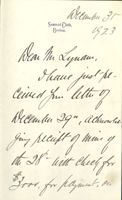 Somerset Club,
Boston.
December 31
1923
Dear Mr Lyman,
I have just re-
ceived your letter of
December 29th, acknow-
ledging receipt of mine of
the 28th with check for
$1000. for payment, on